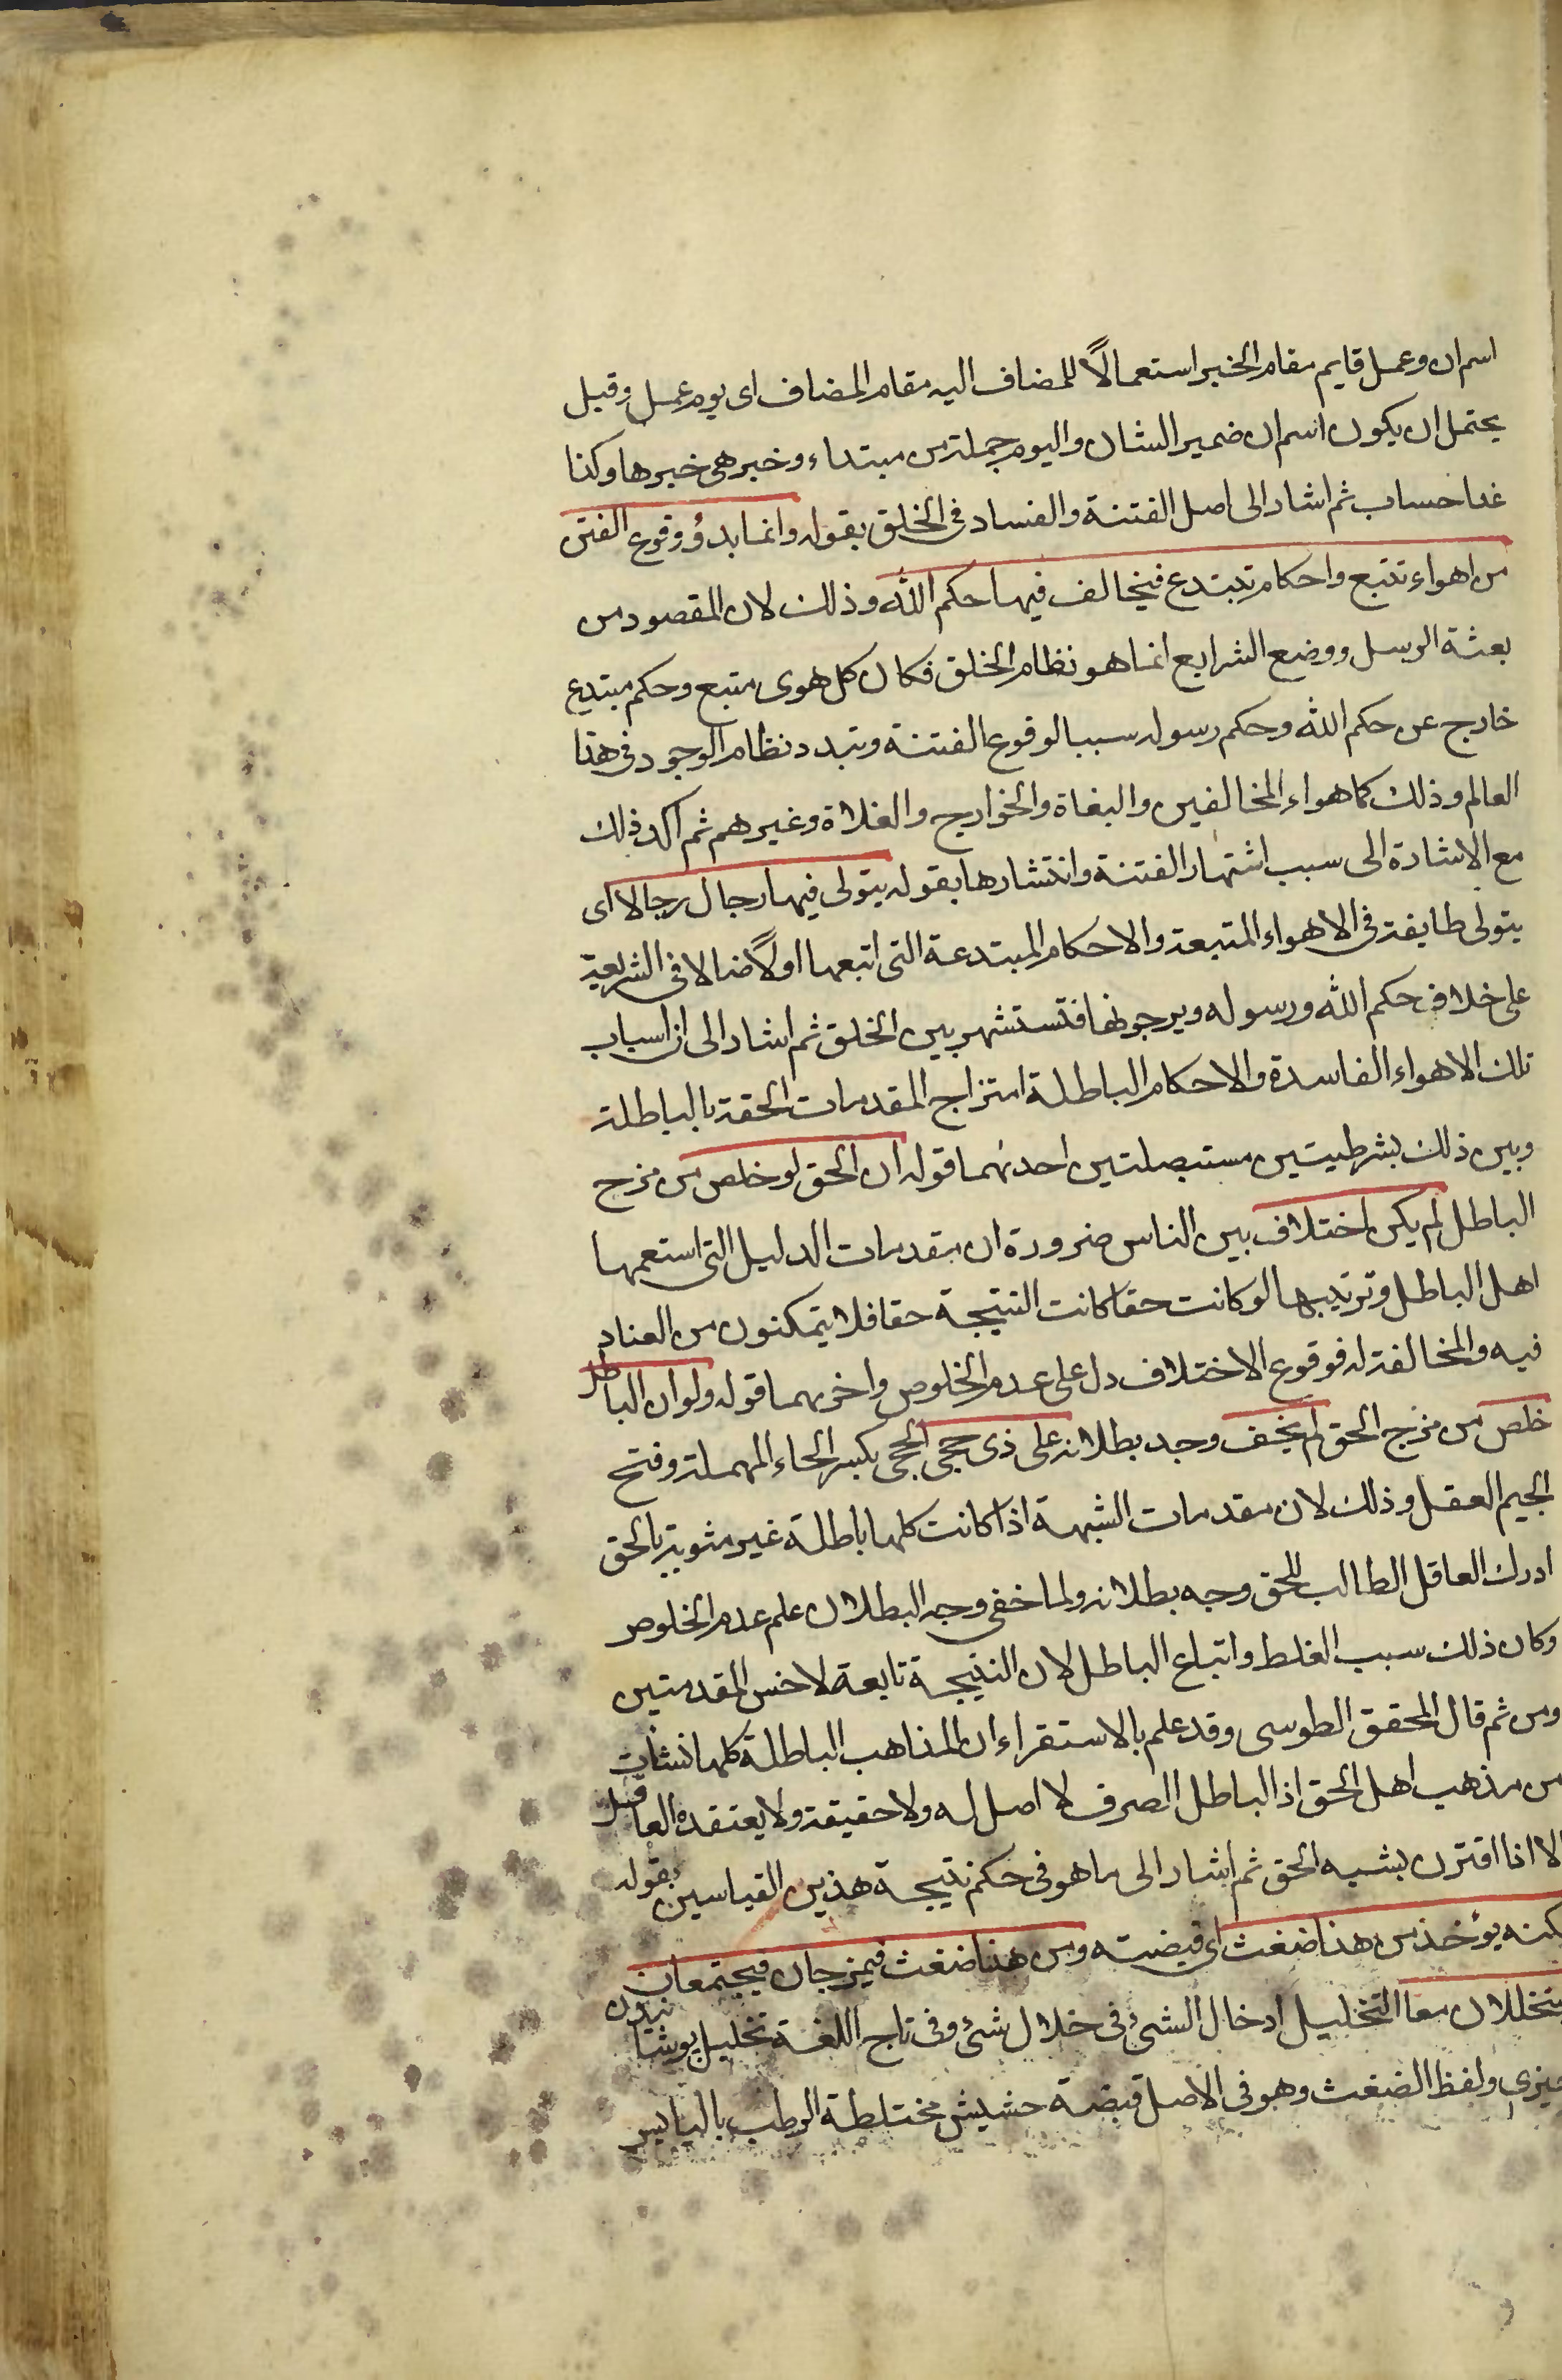 اسم ان وعمل قايم مقام الخبر استعمالاً للمضاف اليه مقام المضاف اى يوم عمل وقيل
يحتمل ان يكون اسم ان ضمير الشان واليوم جملة من مبتداء وخبر هى خبرها وكذا
غدا حساب ثم اشار الى اصل الفتنة والفساد فى الخلق بقوله وانما بدؤ وقوع الفتن
من اهواء تتبع واحكام تبتدع فيخالف فيها حكم الله وذلك لان المقصود من
بعثة الرسل ووضع الشرايع انما هو نظام الخلق فكان كل هوى متبع وحكم مبتدع
خارج عن حكم الله وحكم رسوله سببا لوقوع الفتنة وتبدد نظام الوجود فى هذا
العالم وذلك كاهواء المخالفين والبغاة والخوارج والغلاة وغيرهم ثم اكد ذلك
مع الاشارة الى سبب اشتهار الفتنة وانتشارها بقوله يتولى فيها رجال رجالا اى
يتولى طايفة فى الاهواء المتبعة والاحكام المبتدعة التى اتبعها اولاً ضالا فى الشريعة
على خلاف حكم الله ورسوله ويرجونها فتستشهر بين الخلق ثم اشار الى ان اسباب
تلك الاهواء الفاسدة والاحكام الباطلة امتزاج المقدمات الحقة بالباطلة
وبين ذلك بشرطيتين مستبصلتين احدىهما قوله ان الحق لو خلص من مزج
الباطل لم يكن اختلاف بين الناس ضرورة ان مقدمات الدليل التى استعمها
اهل الباطل وترتيبها لو كانت حقا كانت النتيجة حقا فلا يتمكنون من العناد
فيه والمخالفة له فوقوع الاختلاف دل على عدم الخلوص واخريهما قوله ولو ان الباطل
خلص من مزج الحق لم يخف وجد بطلانه على ذى حجى الحجى بكسر الحاء المهملة وفتح
الجيم العقل وذلك لان مقدمات الشبهة اذا كانت كلها باطلة غير مشوبة بالحق
ادرك العاقل الطالب للحق وجه بطلانه ولما خفى وجه البطلان علم عدم الخلوص
وكان ذلك سبب الغلط واتباع الباطل لان النتيجة تابعة لاخس المقدمتين
ومن ثم قال المحقق الطوسى وقد علم بالاستقراء ان المذاهب الباطلة كلها نشات
من مذهب اهل الحق اذ الباطل الصرف لا اصل له ولا حقيقة ولا يعتقده العاقل
الا اذا اقترن بشبه الحق ثم اشار الى ما هو فى حكم نتيجة هذين القياسين بقوله
لكنه يؤخذ من هذا ضغث اى قبضته ومن هذا ضغث فيمزجان فيجتمعان
يتخللان معا التخليل ادخال الشئ فى خلال شئ وفى تاج اللغة تخليل پوشانيدن
چيزى ولفظ الضغث وهو فى الاصل قبضة حشيش مختلطة الرطب باليابس